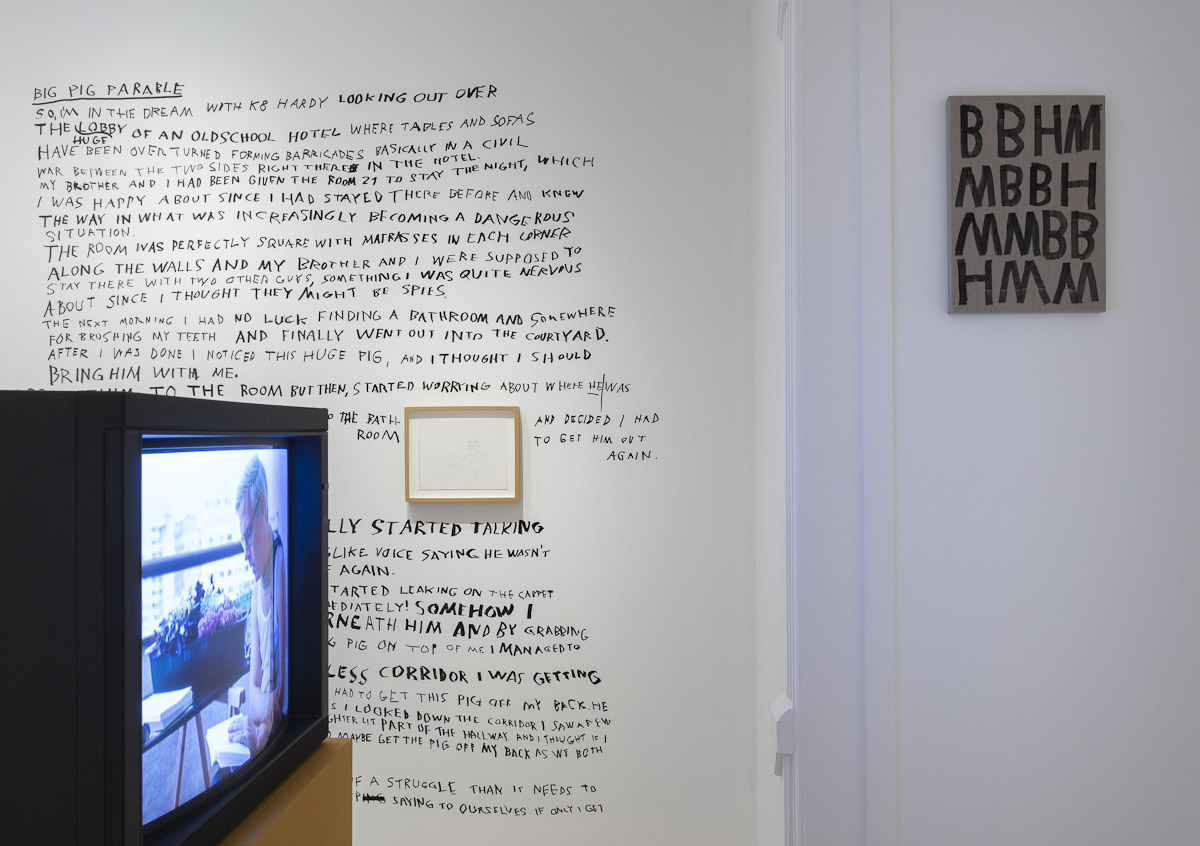 BIG PIG PARABLE
SO, I'M IN THE DREAM WITH K8 HARDY LOOKING OUT OVER
THE LOBBY OF AN OLDSCHOOL HOTEL WHERE TABLES AND SOFAS
HUGE
HAVE BEEN OVERTURNED FORMING BARRICADES BASICALLY IN A CIVIL
WAR BETWEEN THE TWO SIDES RIGHT THERE IN THE HOTEL.
MY BROTHER AND I HAD BEEN GIVEN THE ROOM 21 TO STAY THE NIGHT, WHICH
I WAS HAPPY ABOUT SINCE I HAD STAYED THERE BEFORE AND KNEW
THE WAY IN WHAT WAS INCREASINGLY BECOMING A DANGEROUS
SITUATION.
THE ROOM WAS PERFECTLY SQUARE WITH MATRASSES IN EACH CORNER
ALONG THE WALLS AND MY BROTHER AND I WERE SUPPOSED TO
STAY THERE WITH TWO OTHER GUYS, SOMETHING I WAS QUITE NERVOUS
ABOUT SINCE I THOUGHT THEY MIGHT BE SPIES.
THE NEXT MORNING I HAD NO LUCK FINDING A BATHROOM AND SOMEWHERE
FOR BRUSHING MY TEETH AND FINALLY WENT OUT INTO THE COURTYARD.
AFTER I WAS DONE I NOTICED THIS HUGE PIG, AND I THOUGHT I SHOULD
BRING HIM WITH ME.
HIM TO THE ROOM BUT THEN, STARTED WORRYING ABOUT WHERE HE WAS
THE BATH-
ROOM
AND DECIDED I HAD
TO GET HIM OUT
AGAIN.
LLY STARTED TALKING
LIKE VOICE SAYING HE WASN'T
AGAIN.
STARTED LEAKING ON THE CARPET
EDIATELY! SOMEHOW I
RNEATH HIM AND BY GRABBING
G PIG ON TOP OF ME I MANAGED TO
LESS CORRIDOR I WAS GETTING
HAD TO GET THIS PIG OFF MY BACK. HE
S I LOOKED DOWN THE CORRIDOR I SAW A FEW
GHTER LIT PART OF THE HALLWAY. AND I THOUGHT IF I
MAYBE GET THE PIG OFF MY BACK AS WE BOTH
F A STRUGGLE THAN IT NEEDS TO
SAYING TO OURSELVES IF ONLY I GET
BBHM
MBBH
MMBB
HMM